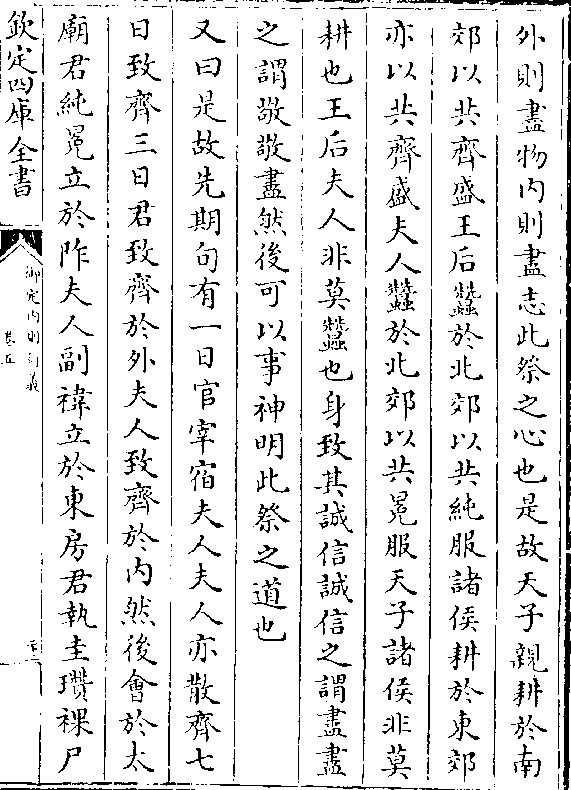 外則盡物内則盡志此祭之心也是故天子親耕於南
郊以共齊盛王后蠶於北郊以共純服諸侯耕於東郊
亦以共齊盛夫人蠶於北郊以共冕服天子諸侯非莫
耕也王后夫人非莫蠶也身致其誠信誠信之謂盡盡
之謂敬敬盡然後可以事神明此祭之道也
又曰是故先期旬有一日官宰宿夫人夫人亦散齊七
日致齊三日君致齊於外夫人致齊於内然後會於太
廟君純冕立於阼夫人副褘立於東房君執圭瓚祼尸
欽定四庫全書
御定内則衍義
卷五